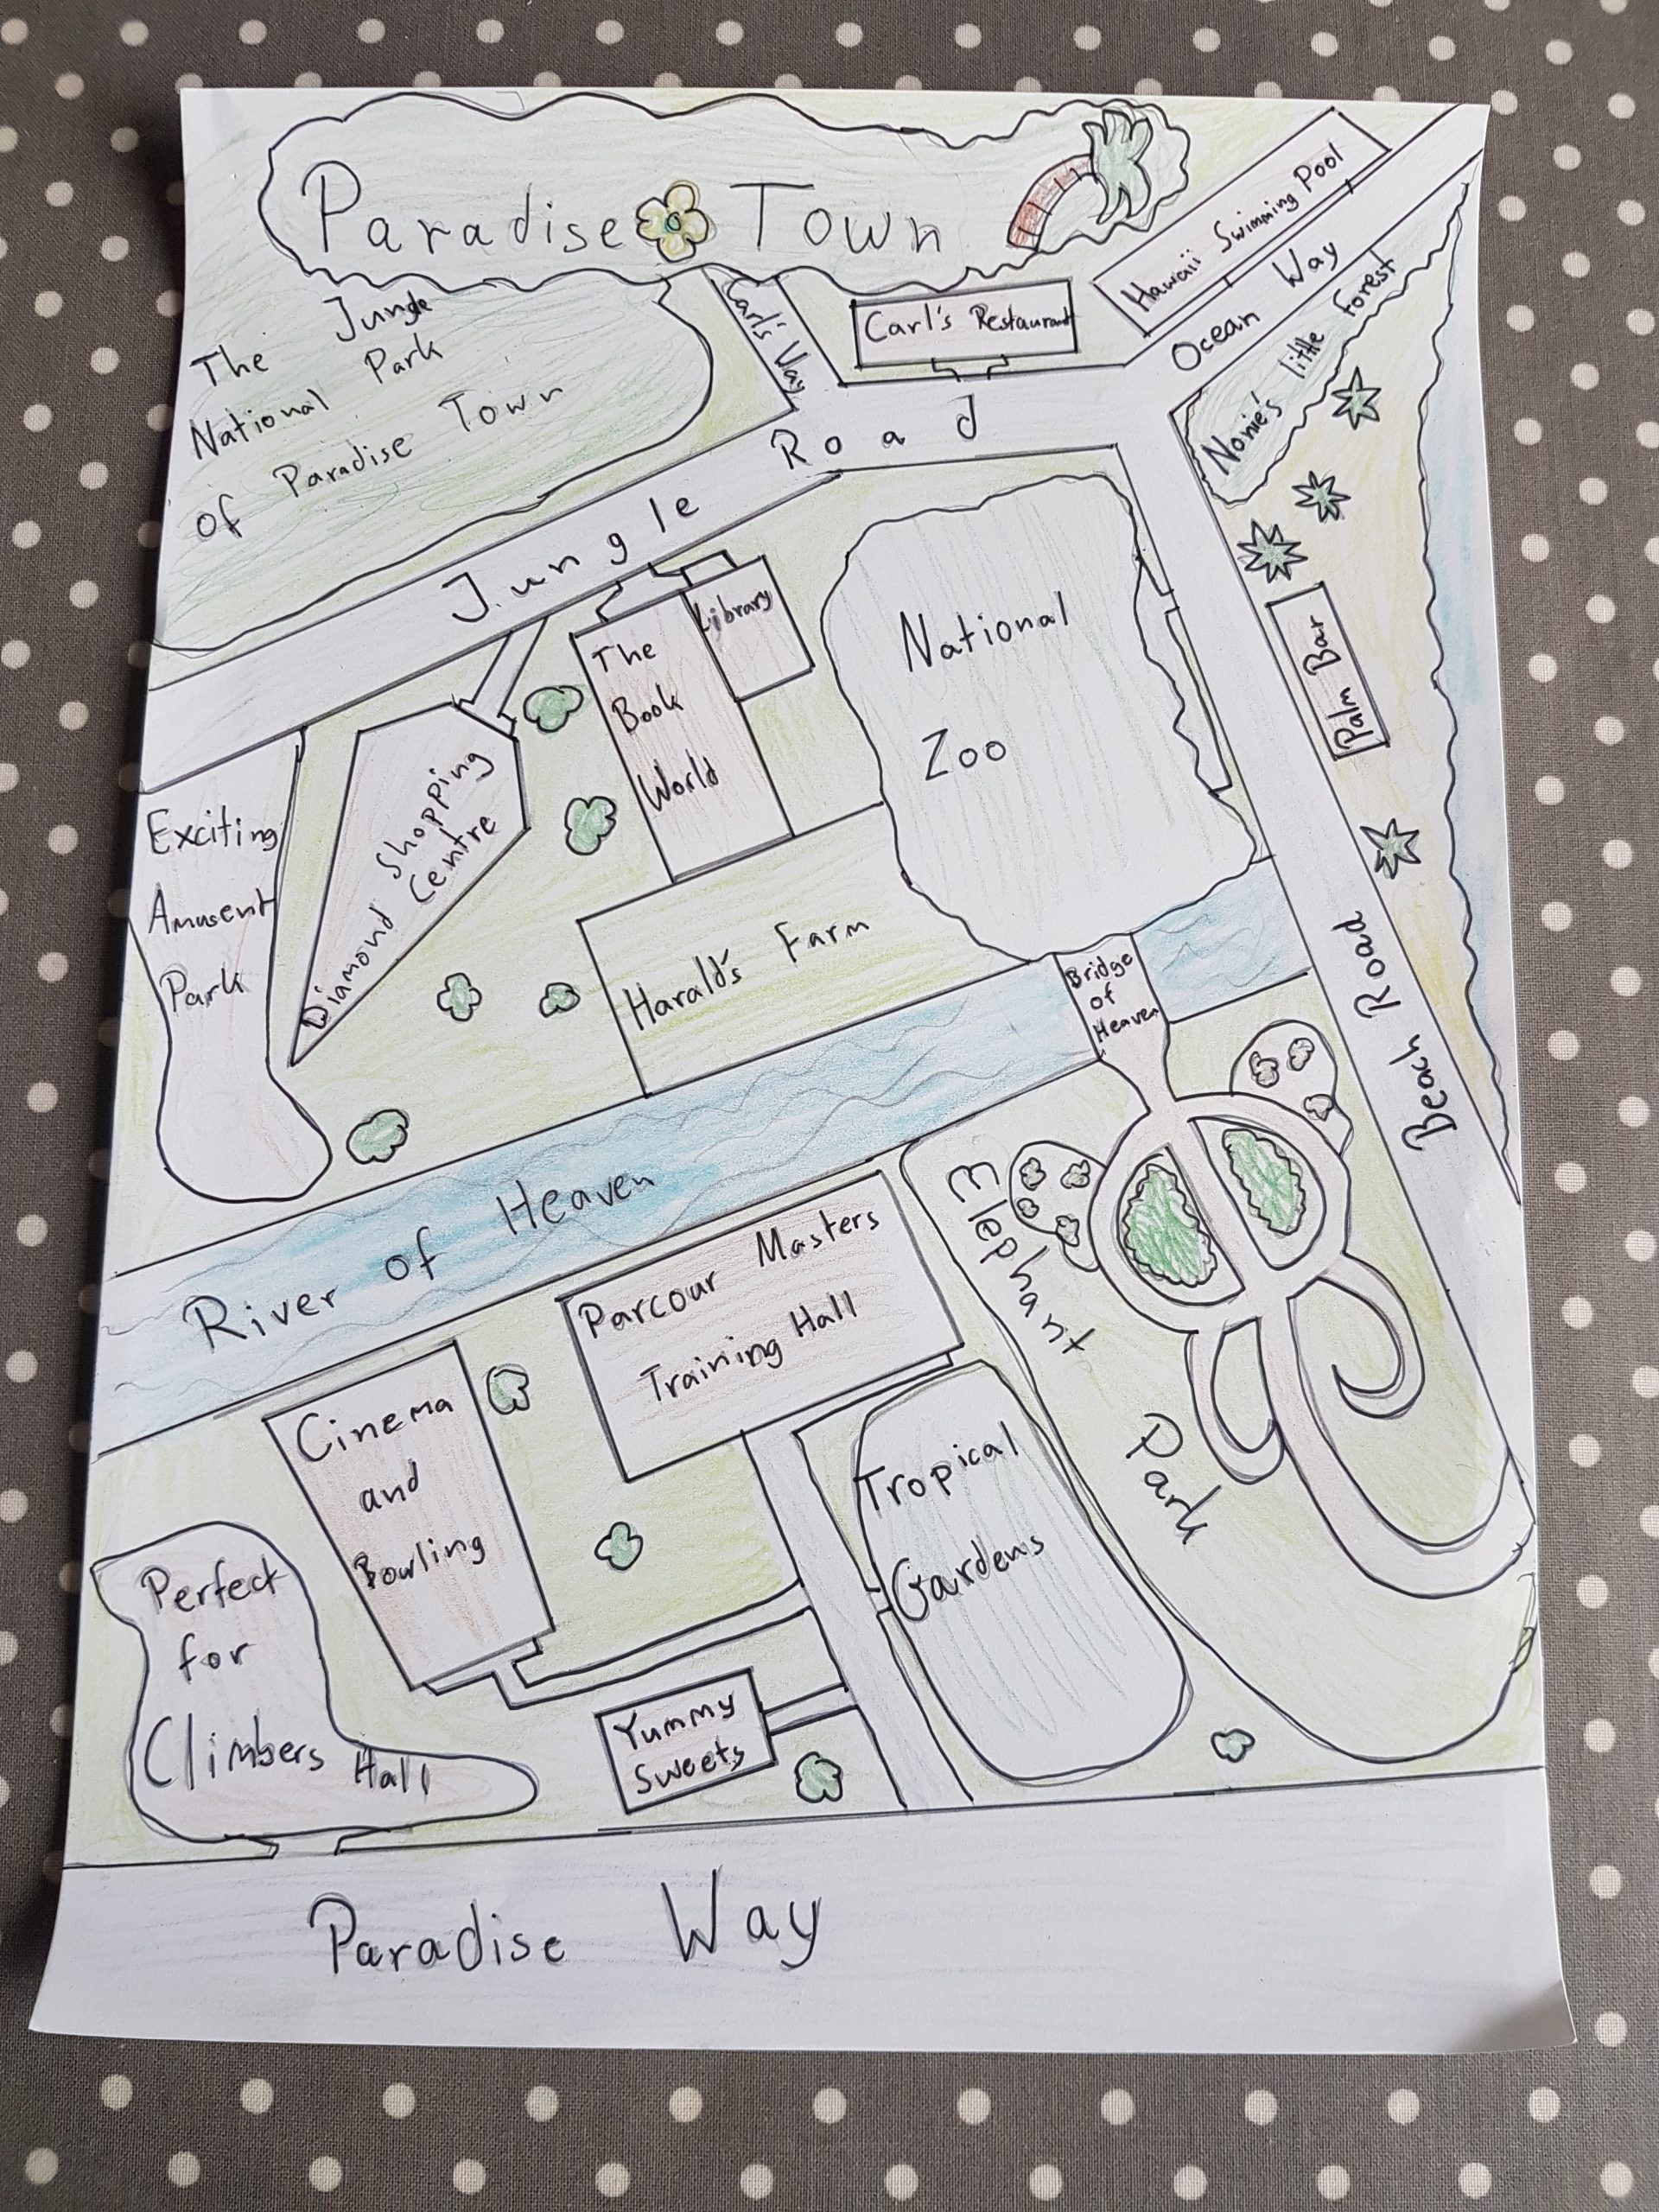 Paradise Town
The Jungle
National Park
of Paradise Town
Carl's Way
Carl's Restaurant
Hawaii Swimming Pool
Ocean Way
Nonie's little Forest
Jungle Road
Library
The
Book
World
National
Zoo
Palm Bar
Exciting
Amusent
Park
Diamond Shopping
Centre
Harald's Farm
Bridge
of
Heaven
Beach Road
River of Heaven
Parcour Masters
Training Hall
Elephant
Park
Cinema
and
Bowling
Tropical
Gardens
Perfect
for
Climbers Hall
Yummy
Sweets
Paradise Way